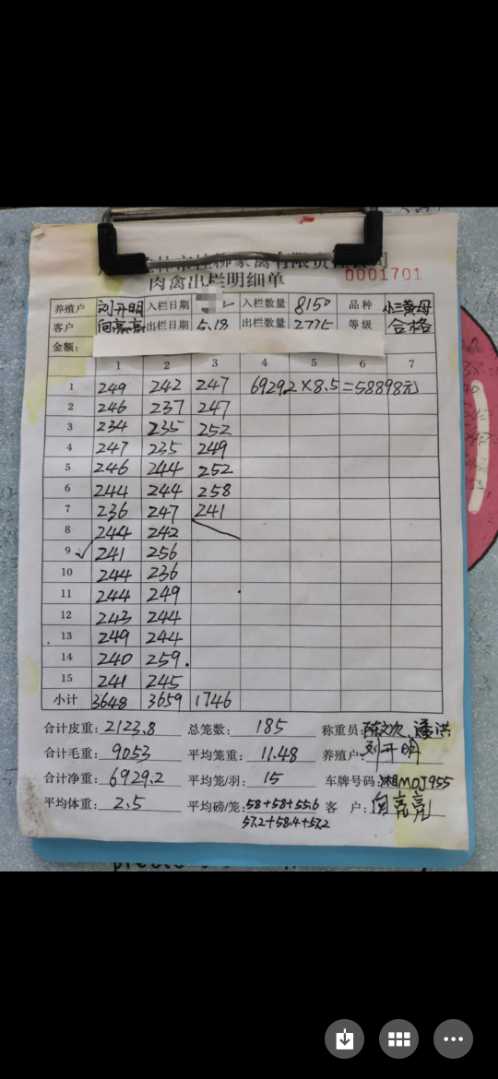 肉禽出栏明细单
0001701
养殖户 刘开明 入栏日期 入栏数量 8150 品种 小三黄母
客户 向亮亮 出栏日期 5.18 出栏数量 2775 等级 合格
金额:
1 2 3 4 5 6 7
1 249 242 247 69292×8.5=58898元
2 246 237 247
3 234 235 252
4 247 235 249
5 246 244 252
6 244 244 258
7 236 247 241
8 244 242
9 241 256
10 244 236
11 244 249
12 243 244
13 249 244
14 240 259
15 241 245
小计 3648 3659 1746
合计皮重: 2123.8 总笼数: 185 称重员:
合计毛重: 9053 平均笼重: 11.48 养殖户 刘开明
合计净重: 6929.2 平均笼/羽: 15 车牌号码: 湘M0J955
平均体重: 2.5 平均磅/笼: 58+58+55.6 客 户: 向亮亮
57.2+58.4+57.2